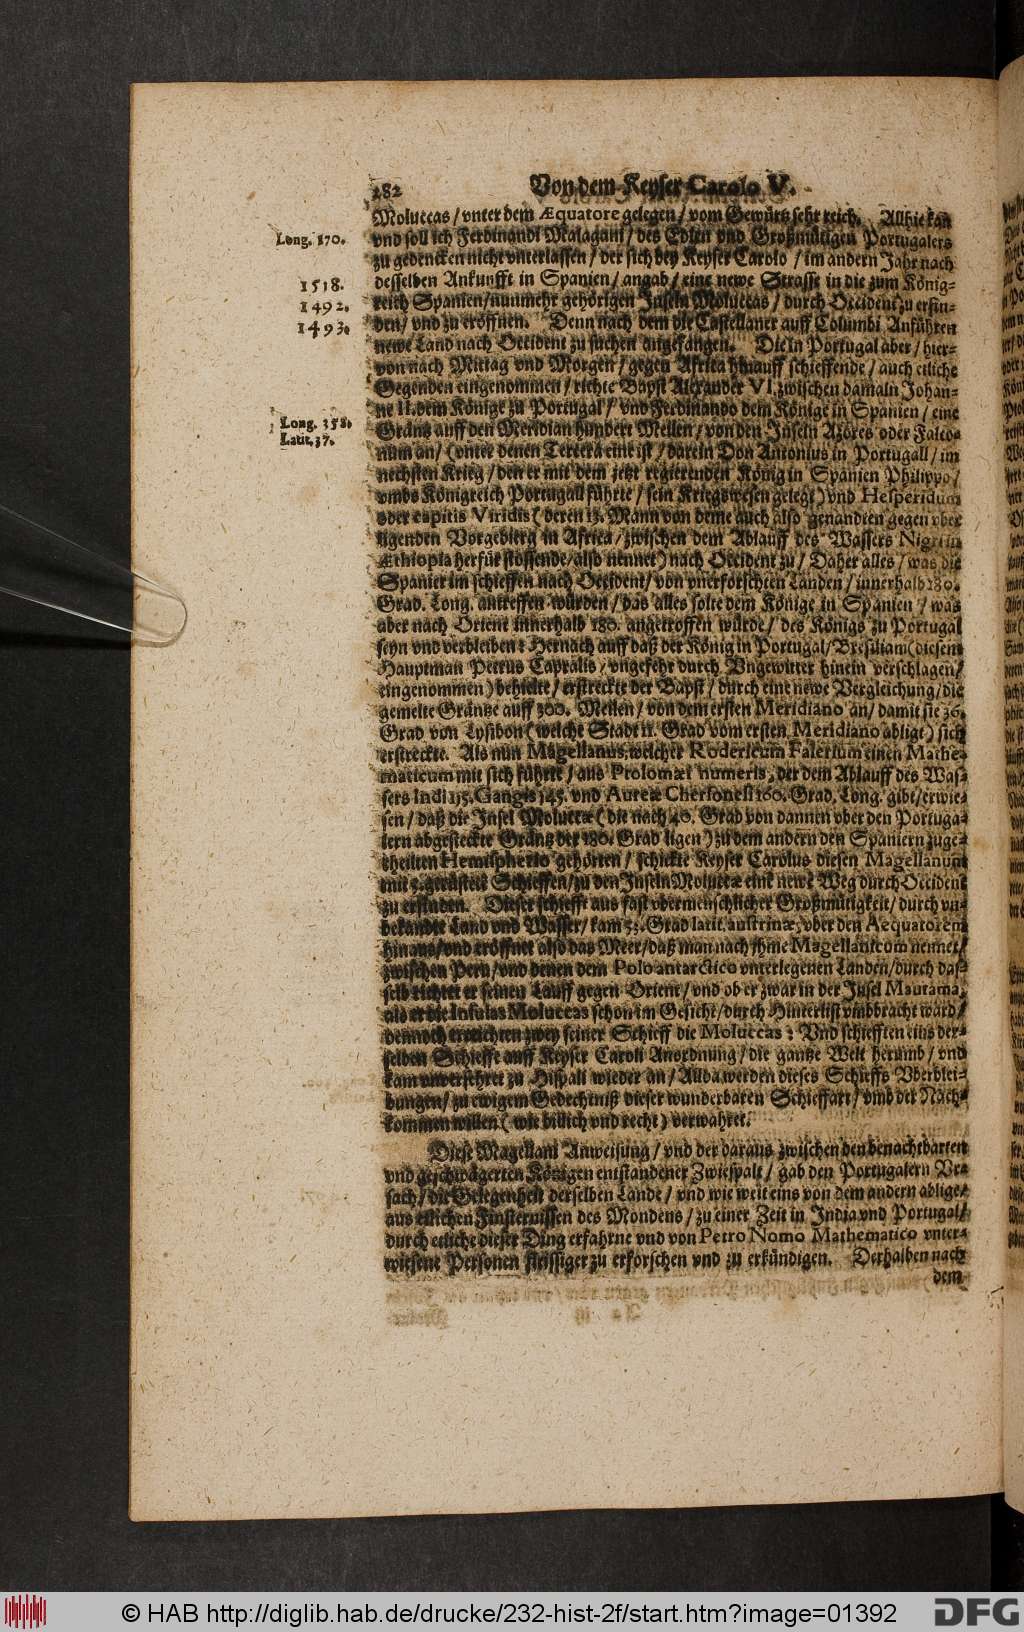 282 Von dem Keyser Carolo V.
Moluccas / vnter dem Æquatore gelegen / vom Gewürtz sehr reich. Allhie kan
Long. 170.
vnd soll ich Ferdinandi Malagani / des Edlen vnd Großmütigen Portugalers
zu gedencken nicht vnterlassen / der sich bey Keyser Carolo / im andern Jahr nach
1518.
desselben Ankunfft in Spanien / angab / eine newe Strasse in die zum König-
1492.
reich Spanien / nunmehr gehörigen Inseln Moluccas / durch Occident zu erfin-
1493.
den / vnd zu eröffnen. Denn nach dem die Castellaner auff Columbi Anführen
newe Land nach Occident zu suchen angefangen. Die in Portugal aber / hier-
von nach Mittag vnd Morgen / gegen Africa hinauff schieffende / auch etliche
Gegenden eingenommen / richte Bapst Alexander VI. zwischen damaln Johan-
ne II. dem Könige zu Portugal / vnd Ferdinando dem Könige in Spanien / eine
Long. 358.
Gräntz auff den Meridian hundert Meilen / von den Inseln Azores oder Falco-
Latit. 37.
num an / (vnter denen Tercera eine ist / darein Don Antonius in Portugall / im
nechsten Krieg / den er mit dem jetzt regierenden König in Spanien Philippo /
vmbs Königreich Portugall führte / sein Kriegswesen gelegt) vnd Hesperidum
oder capitis Viridis (deren 13. Mann von deme auch also genandten gegen vber
ligenden Vorgebierg in Africa / zwischen dem Ablauff des Wassers Nigri in
Æthiopia herfür stossende / also nennet) nach Occident zu / Daher alles / was die
Spanier im schieffen nach Occident / von vnerforschten Landen / innerhalb 180.
Grad. Long. antreffen würden / das alles solte dem Könige in Spanien / was
aber nach Orient innerhalb 180. angetroffen würde / des Königs zu Portugal
seyn vnd verbleiben: Hernach auff daß der König in Portugal / Bresiliam (diesem
Hauptman Petrus Capralis / vngefehr durch Vngewitter hinein verschlagen /
eingenommen) behielte / erstreckte der Bapst / durch eine newe Vergleichung / die
gemelte Gräntze auff 300. Meilen / von dem ersten Meridiano an / damit sie 36.
Grad von Lysibon (welche Stadt 11. Grad vom ersten Meridiano abligt) sich
erstreckte. Als nun Magellanus, welcher Rodericum Falerium einen Mathe-
maticum mit sich führte / aus Ptolomæi numeris, der dem Ablauff des Was-
sers Indi 115. Gangis 145. vnd Aureæ Chersonesi 160. Grad. Long. gibt / erwie-
sen / daß die Insel Moluccæ (die nach 40. Grad von dannen vber den Portuga-
lern abgesteckte Gräntz der 180. Grad ligen) zu dem andern den Spaniern zuge-
theilten Hemispherio gehörten / schickte Keyser Carolus diesen Magellanum
mit 5. gerüstete Schieffen / zu den Inseln Moluccæ eine newe Weg durch Occident
zu erfinden. Dieser schiefft aus fast vbermenschlicher Großmütigkeit / durch vn-
bekandte Land vnd Wasser / kam Grad latit. austrinæ, vber den Aequatorem
hinaus / vnd eröffnet also das Meer / daß man nach jhme Magellanicum nennet /
zwischen Peru / vnd denen dem Polo antarctico vnterlegenen Landen / durch das-
selb richtet er seinen Lauff gegen Orient / vnd ob er zwar in der Insel Mautama,
als er die Insulas Moluccas schon im Gesicht / durch Hinterlist vmbbracht ward /
dennoch erreichten zwey seiner Schieff die Moluccas: Vnd schiefften eins der-
selben Schieffe auff Keyser Caroli Anordnung / die gantze Welt herumb / vnd
kam unversehret zu Hispali wieder an / Allda werden dieses Schieffs Vberblei-
bungen / zu ewigem Gedechtniß dieser wunderbaren Schieffart / vmb der Nach-
kommen willen (wie billich vnd recht) verwahret.
Diese Magellani Anweisung / vnd der daraus zwischen den benachtbarten
vnd geschwägerten Königen entstandener Zwiespalt / gab den Portugalern Vr-
sach / die Gelegenheit derselben Lande / vnd wie weit eins von dem andern ablige /
aus etlichen Finsternissen des Mondens / zu einer Zeit in India vnd Portugal /
durch etliche dieser Ding erfahrne vnd von Petro Nomo Mathematico vnter-
wiesene Personen fleissiger zu erforschen vnd zu erkündigen. Derhalben nach
dem
© HAB http://diglib.hab.de/drucke/232-hist-2f/start.htm?image=01392
DFG